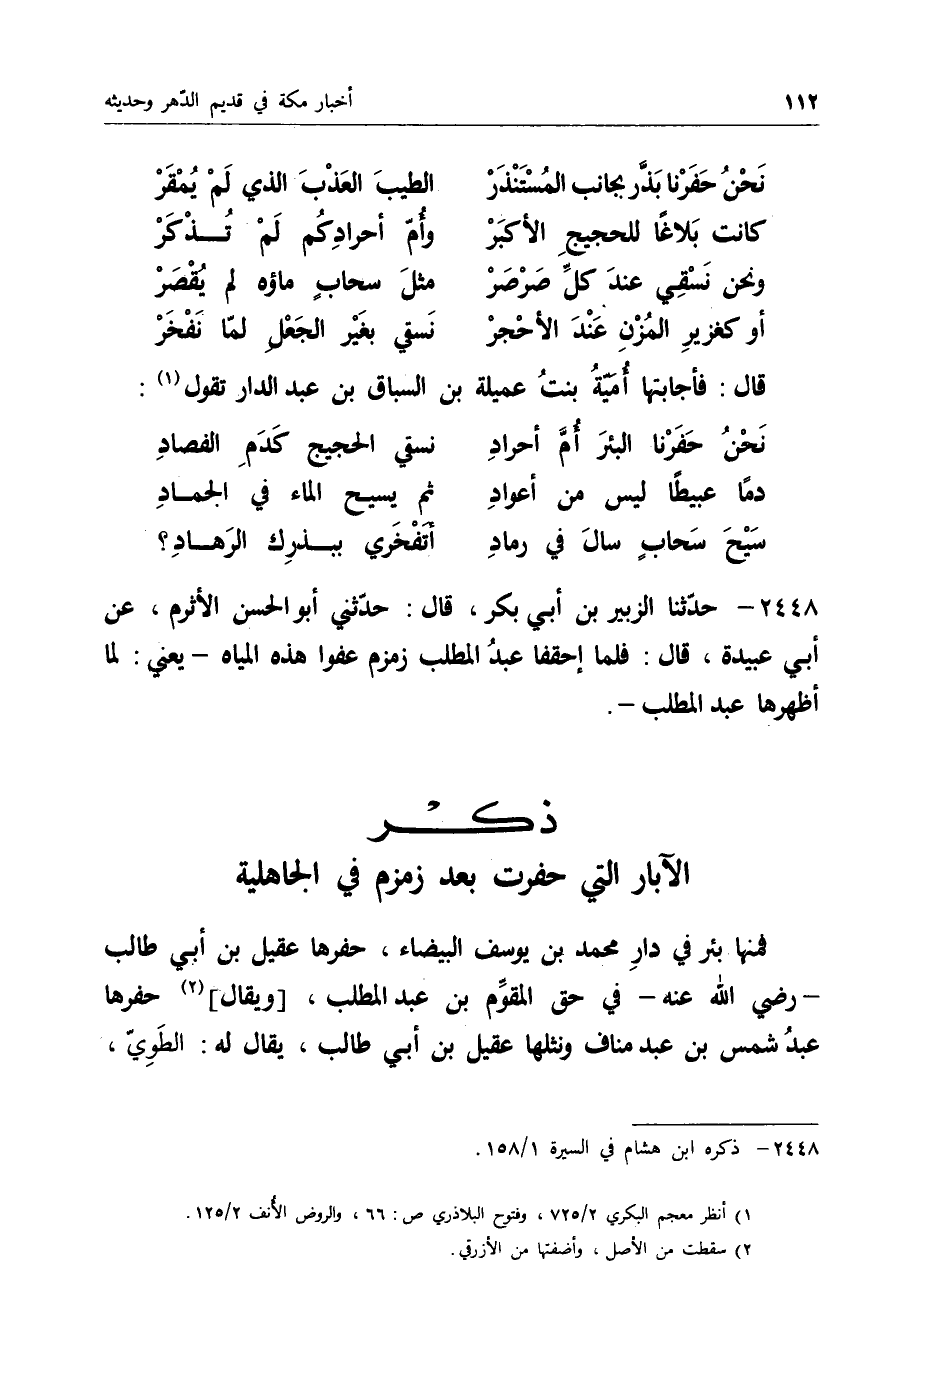 ١١٢ أخبار مكة في قديم الدّهر وحديثه
نَحْنُ حَفَرْنا بَذَّر بجانب المُسْتَنْذَرْ الطيبَ العَذْبَ الذي لَمْ يُمْقَرْ
كانت بَلاغًا للحجيجِ الأكبَرْ وأُمّ أحرادِكُم لَمْ تُـــذْكَرْ
ونحن نَسْقِي عندَ كلِّ صَرْصَرْ مثلَ سحابٍ ماؤه لم يُقْصَرْ
أو كغزيرِ المُزْنِ عَنْدَ الأحْجرْ نَسقي بغَيْر الجَعْلِ لمّا نَفْخَرْ
قال : فأجابتها أُمَيّةُ بنتُ عميلة بن السباق بن عبد الدار تقول(١) :
نَحْنُ حَفَرْنا البئرَ أُمَّ أحرادِ نسقي الحجيج كَدَمِ الفصادِ
دمًا عبيطًا ليس من أعوادِ ثم يسيـح الماء في الجمـادِ
سَيْحَ سَحابٍ سالَ في رمادِ أتَفْخَري ببـــذرِك الرَهـــادِ؟
٢٤٤٨– حدّثنا الزبير بن أبي بكر ، قال : حدّثني أبو الحسن الأثرم ، عن
أبي عبيدة ، قال : فلما إحقفا عبدُ المطلب زمزم عفوا هذه المياه – يعني : لما
أظهرها عبد المطلب – .
ذكـــر
الآبار التي حفرت بعد زمزم في الجاهلية
فمنها بئر في دارِ محمد بن يوسف البيضاء ، حفرها عقيل بن أبي طالب
– رضي الله عنه – في حق المقوِّم بن عبد المطلب ، [ويقال](٢) حفرها
عبدُ شمس بن عبد مناف ونثلها عقيل بن أبي طالب ، يقال له : الطَوِيّ ،
٢٤٤٨– ذكره ابن هشام في السيرة ١٥٨/١ .
١) أنظر معجم البكري ٧٢٥/٢ ، وفتوح البلاذري ص : ٦٦ ، والروض الأُنف ١٢٥/٢ .
٢) سقطت من الأصل ، وأضفتها من الأزرقي .